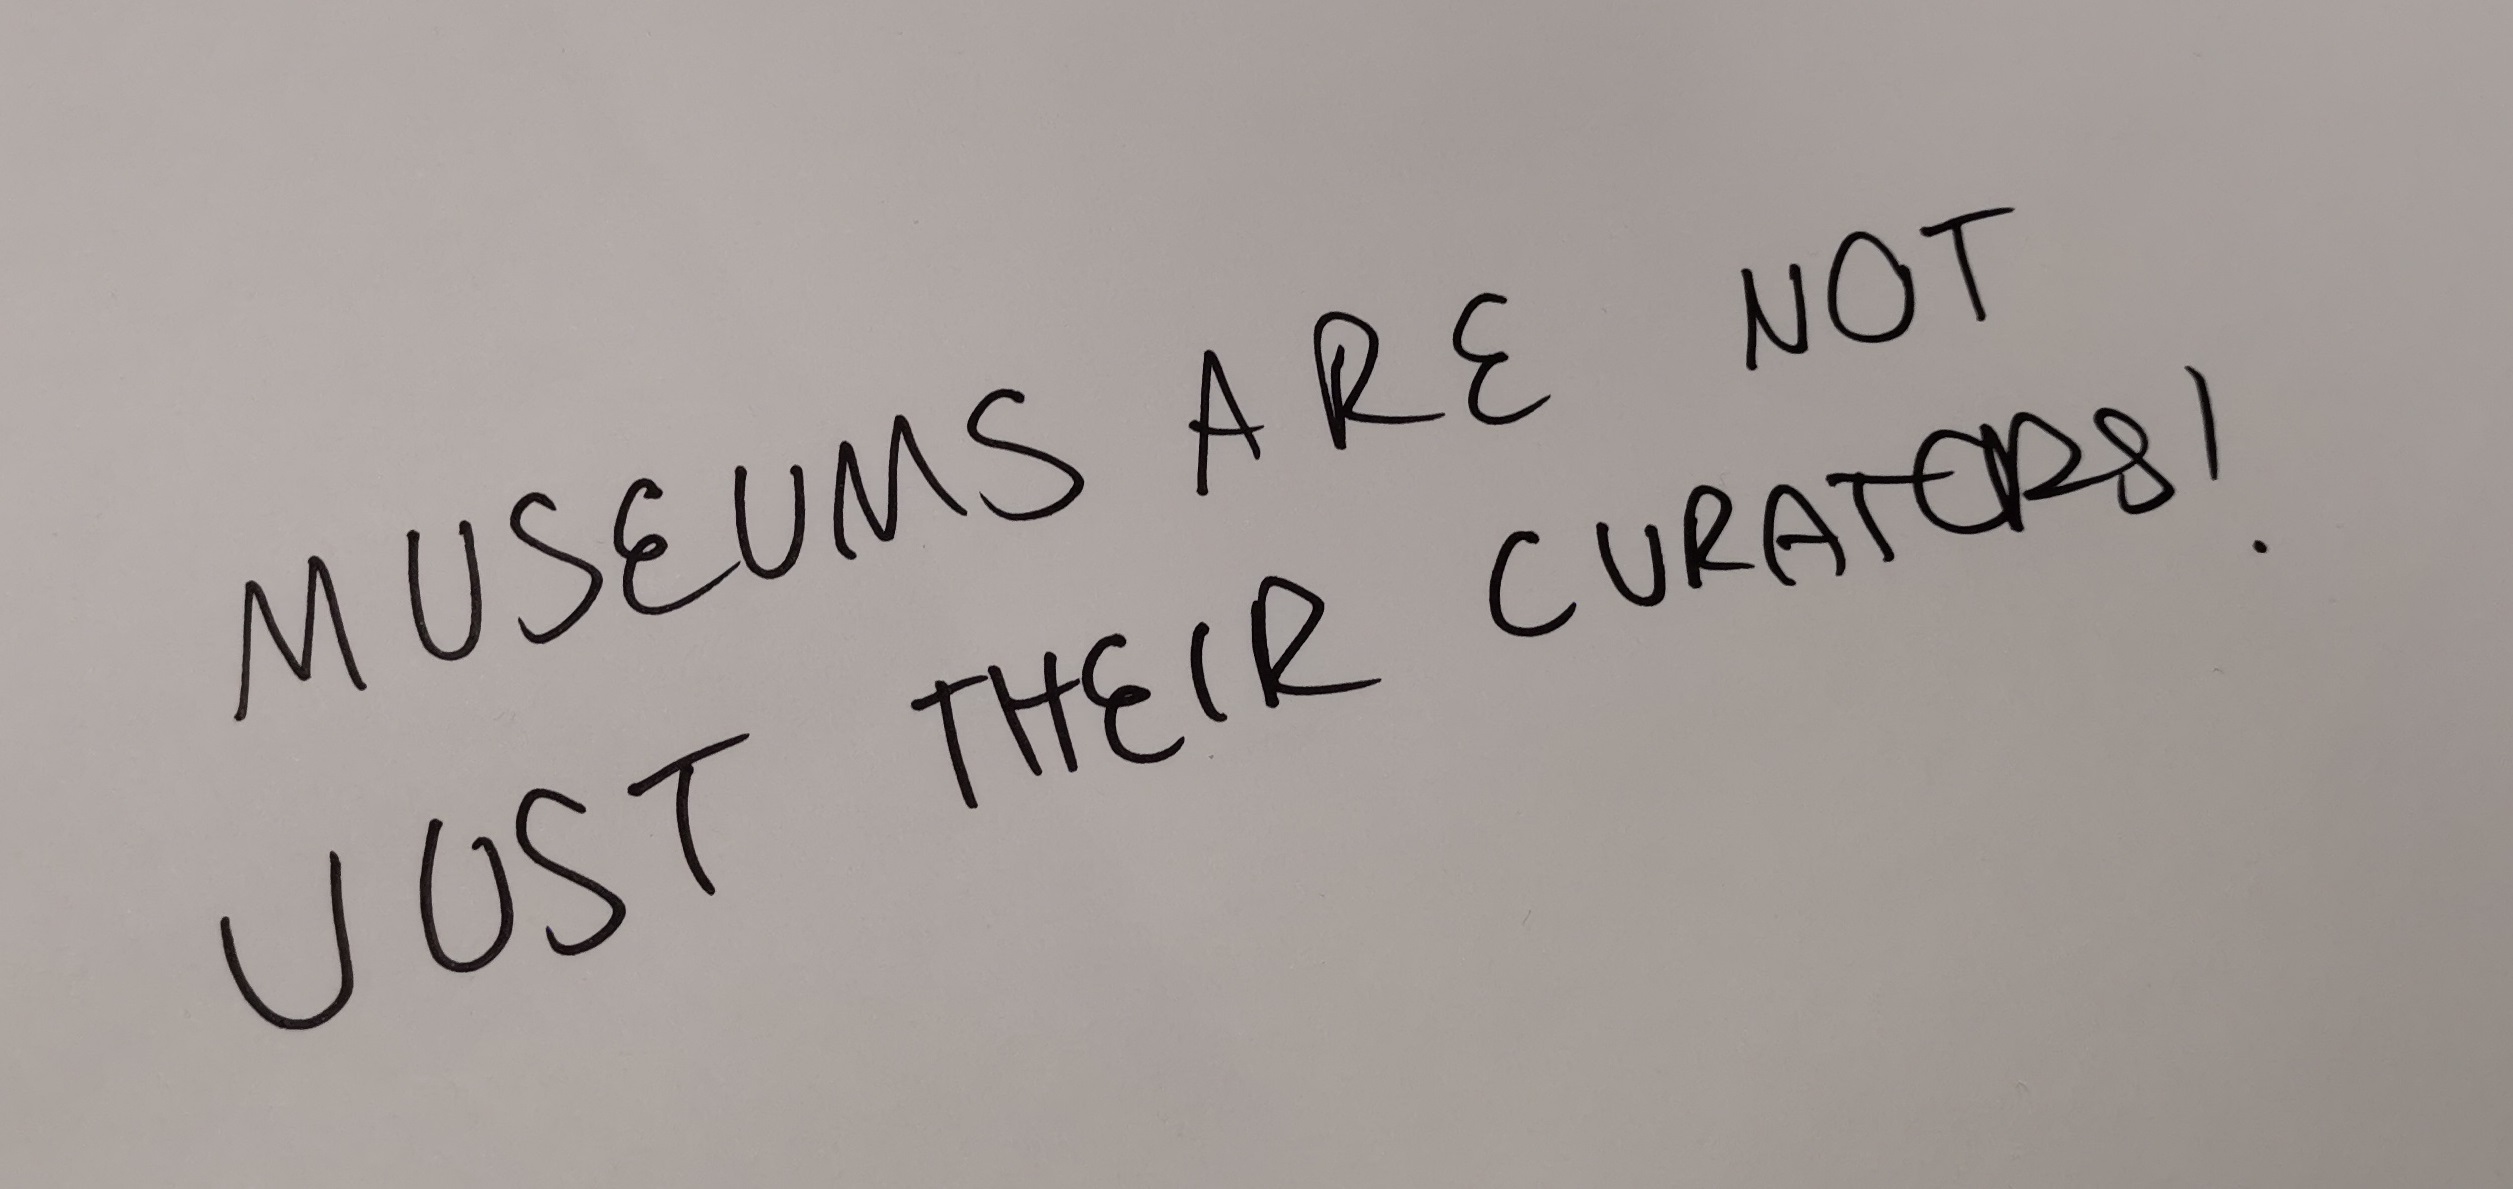 MUSEUMS ARE NOT
JUST THEIR CURATORS!